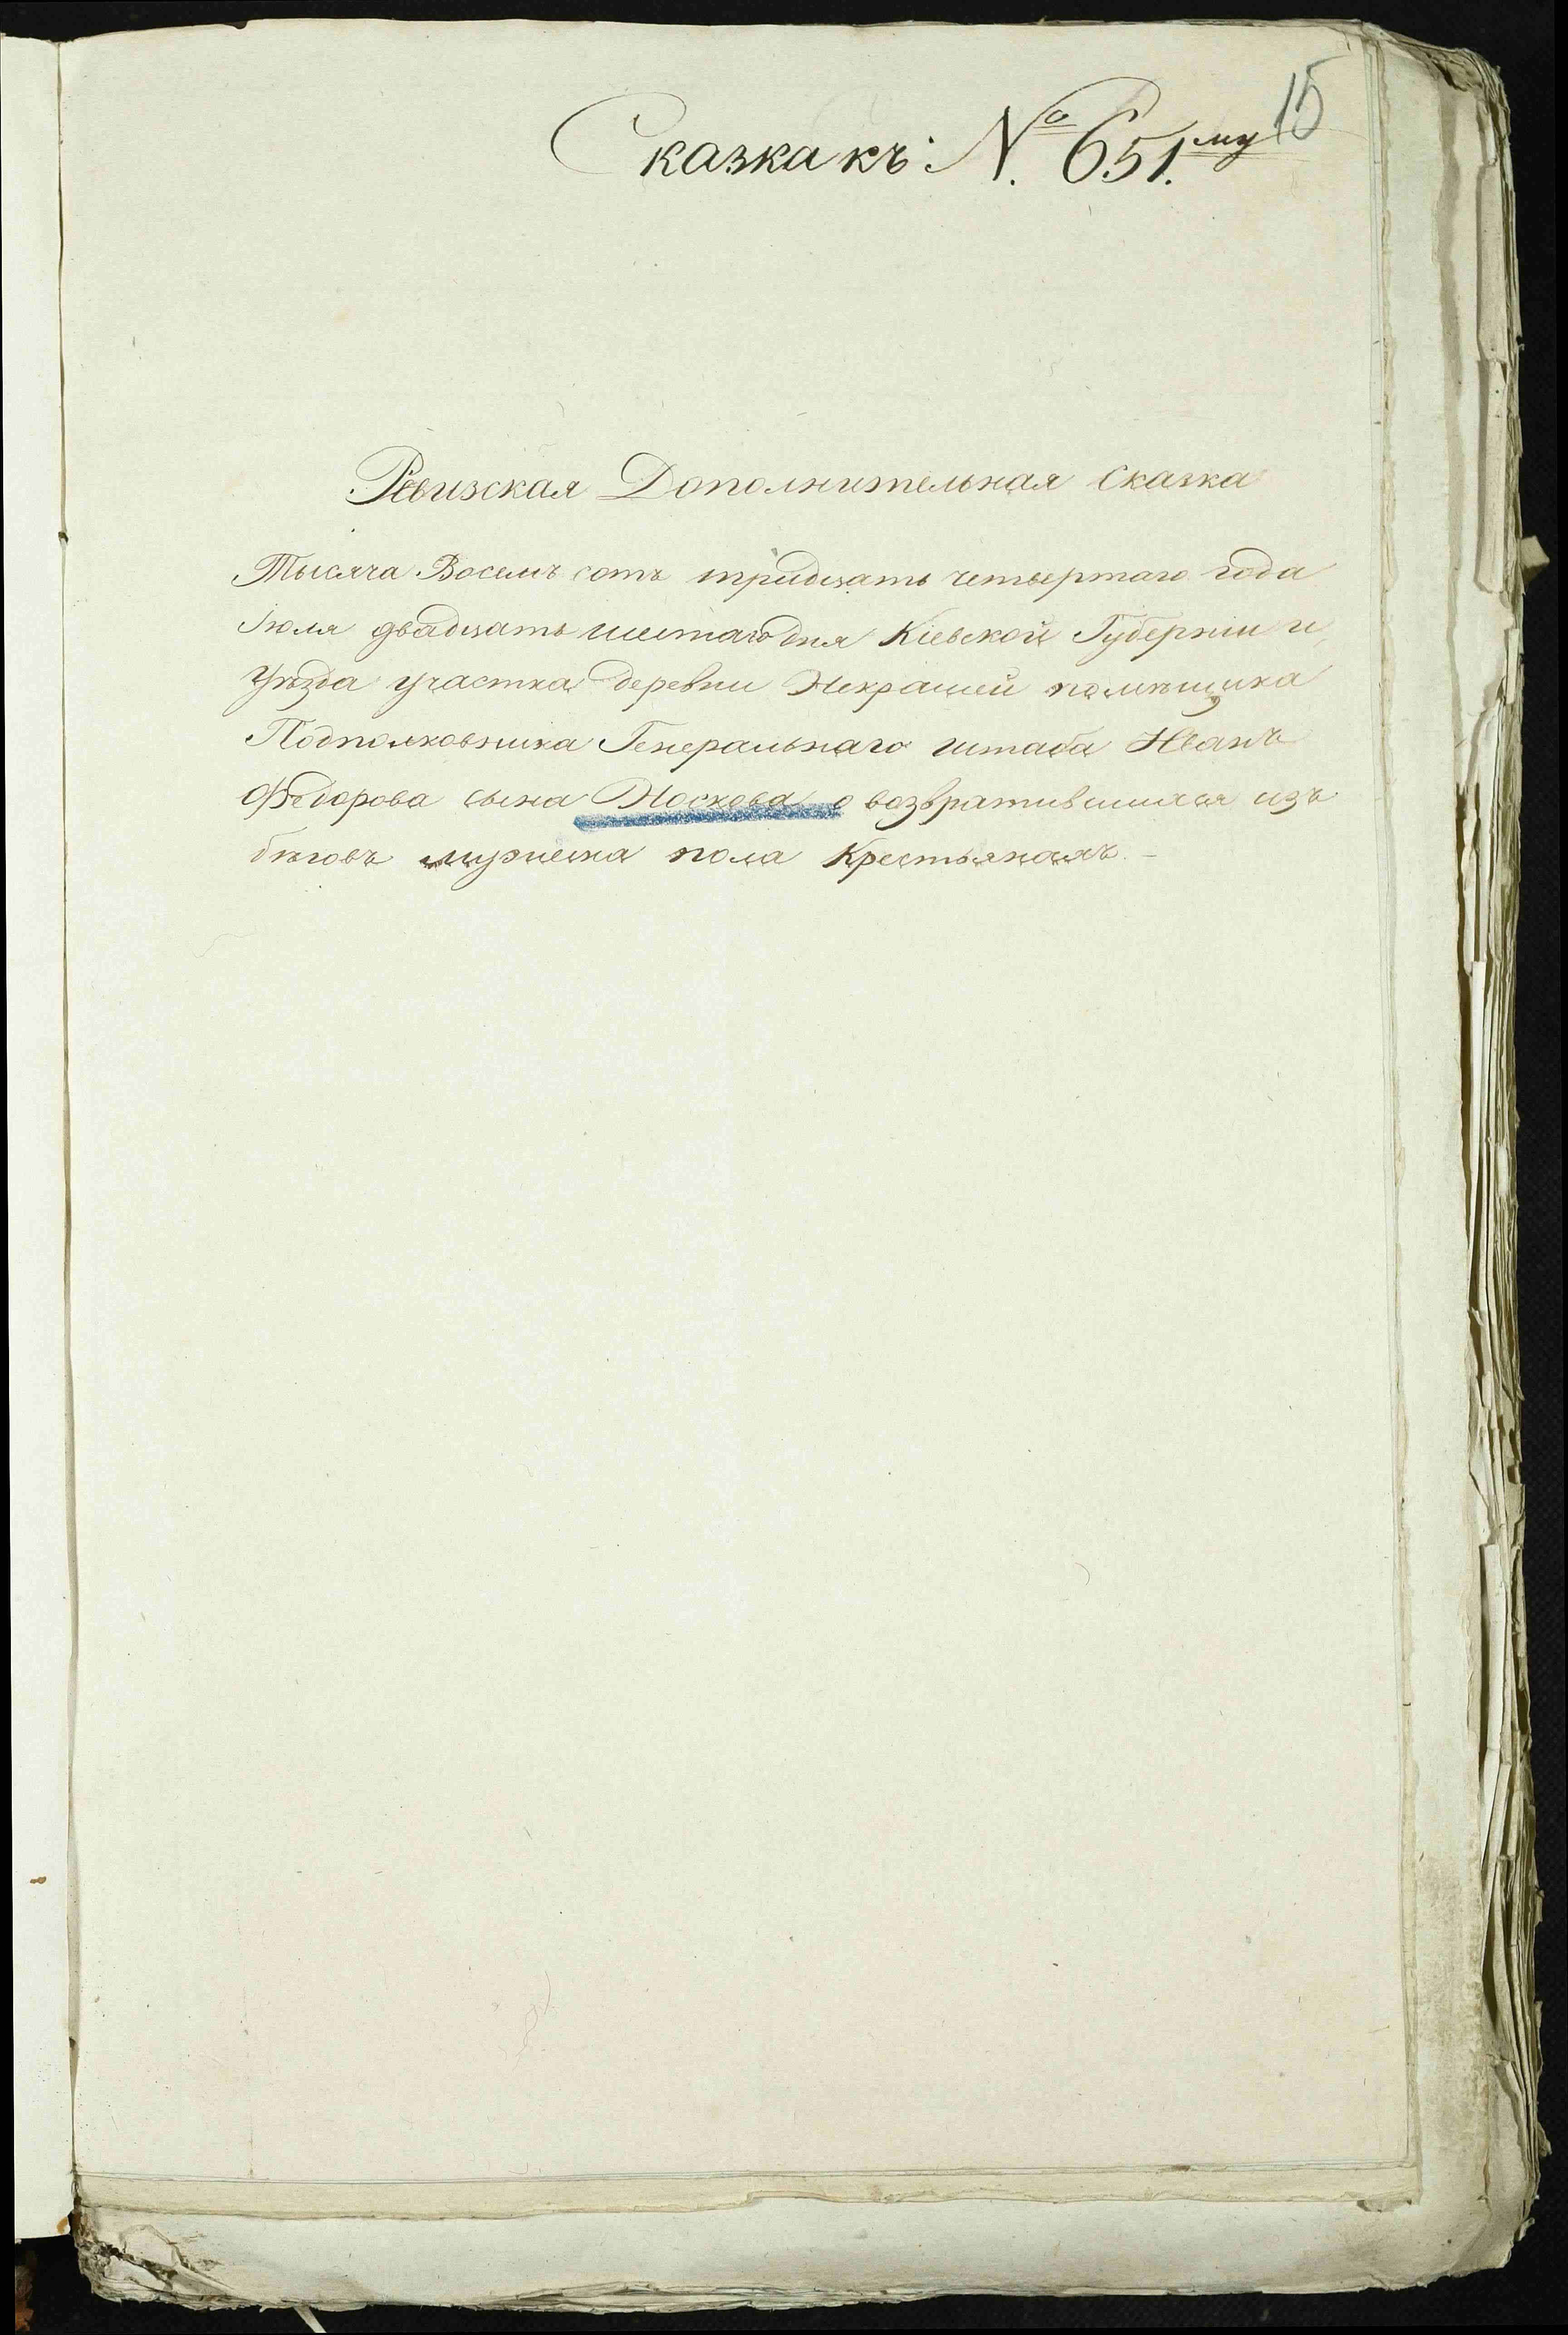 15
Сказка къ № 651.му
Ревизская Дополнительная Сказка
Тысяча Восемъ сотъ тридцать четвертаго года
Іюля двадцать шестаго дня Кіевской Губерніи и
Уѣзда участка деревни Некрашей помѣщика
Подполковника Генеральнаго штаба Иванъ
Федорова сына Носкова о возвратившихся изъ
бѣговъ мужеска пола Крестьянахъ.-